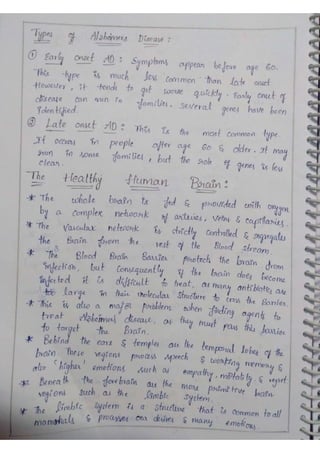 Types of Alzheimers Disease :
① Early Onset AD : Symptoms appear before age 60.
This type is much less common than late onset
However, it tends to get worse quickly. Early onset of
disease can run in families. Several genes have been
identified.
② Late onset AD : This is the most common type
It occurs in people after age 60 & older. It may
run in some families, but the role of genes is less
clear.
The Healthy Human Brain :
* The whole brain is fed & provided with oxygen
by a complex network of arteries, veins & capillaries.
* The Vascular network is strictly controlled & segregates
the Brain from the rest of the Blood stream.
* The Blood Brain Barrier protects the brain from
infection, but consequently if the brain does become
infected it is difficult to treat, as many antibiotics are
large in their molecular structure to cross the Barrier.
* This is also a major problem when finding agents to
treat Alzheimers disease, as they must pass this barrier
to target the Brain.
* Behind the ears & temples are the temporal lobes of the
brain. These regions process speech & working memory &
also higher emotions such as empathy, & regret
* Beneath the forebrain are the more primitive brain
regions such as the limbic system.
* The limbic system is a structure that is common to all
mammals & processes our drives & many emotions.